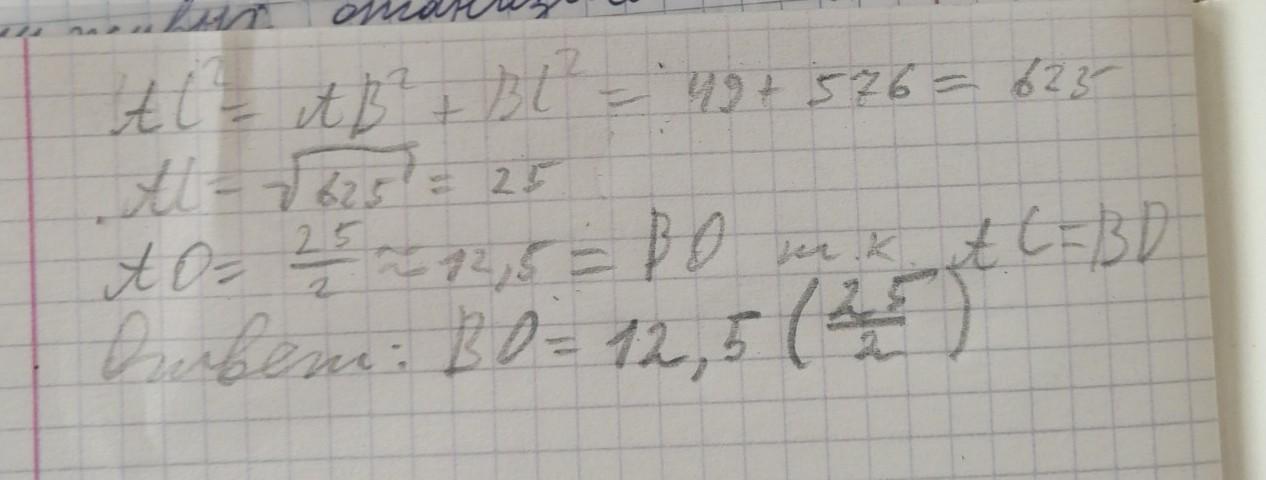 AC² = AB² + BC² = 49 + 576 = 625
AC = √625 = 25
AO = 25/2 ≈ 12,5 = BO т.к. AC = BD
Ответ: BO = 12,5 (25/2)